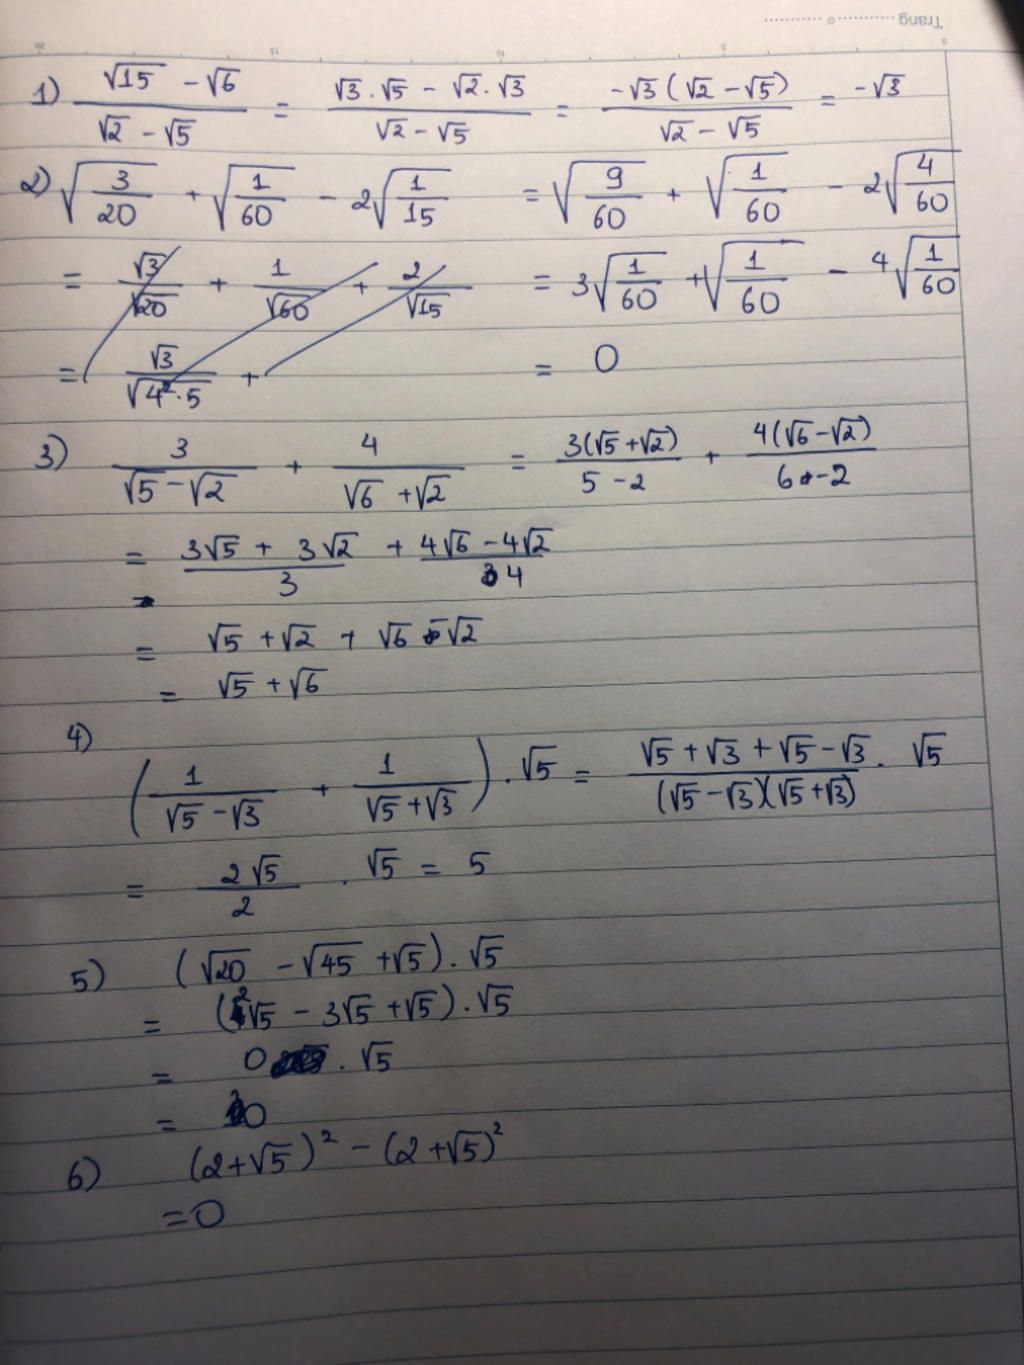 Trang
20 15 10 5 0
1) (√15 - √6)/(√2 - √5) = (√3 . √5 - √2 . √3)/(√2 - √5) = (-√3 (√2 - √5))/(√2 - √5) = -√3
2) √(3/20) + √(1/60) - 2√(1/15) = √(9/60) + √(1/60) - 2√(4/60)
= √3/√20 + 1/√60 + 2/√15 = 3√(1/60) + √(1/60) - 4√(1/60)
= √3/√(4² . 5) + = 0
3) 3/(√5 - √2) + 4/(√6 + √2) = 3(√5 + √2)/(5 - 2) + 4(√6 - √2)/(6 - 2)
= (3√5 + 3√2)/3 + (4√6 - 4√2)/4
= √5 + √2 + √6 - √2
= √5 + √6
4)
(1/(√5 - √3) + 1/(√5 + √3)) . √5 = (√5 + √3 + √5 - √3)/((√5 - √3)(√5 + √3)) . √5
= 2√5/2 . √5 = 5
5) (√20 - √45 + √5) . √5
= (2√5 - 3√5 + √5) . √5
= 0 . √5
= 0
6) (2 + √5)² - (2 + √5)²
= 0